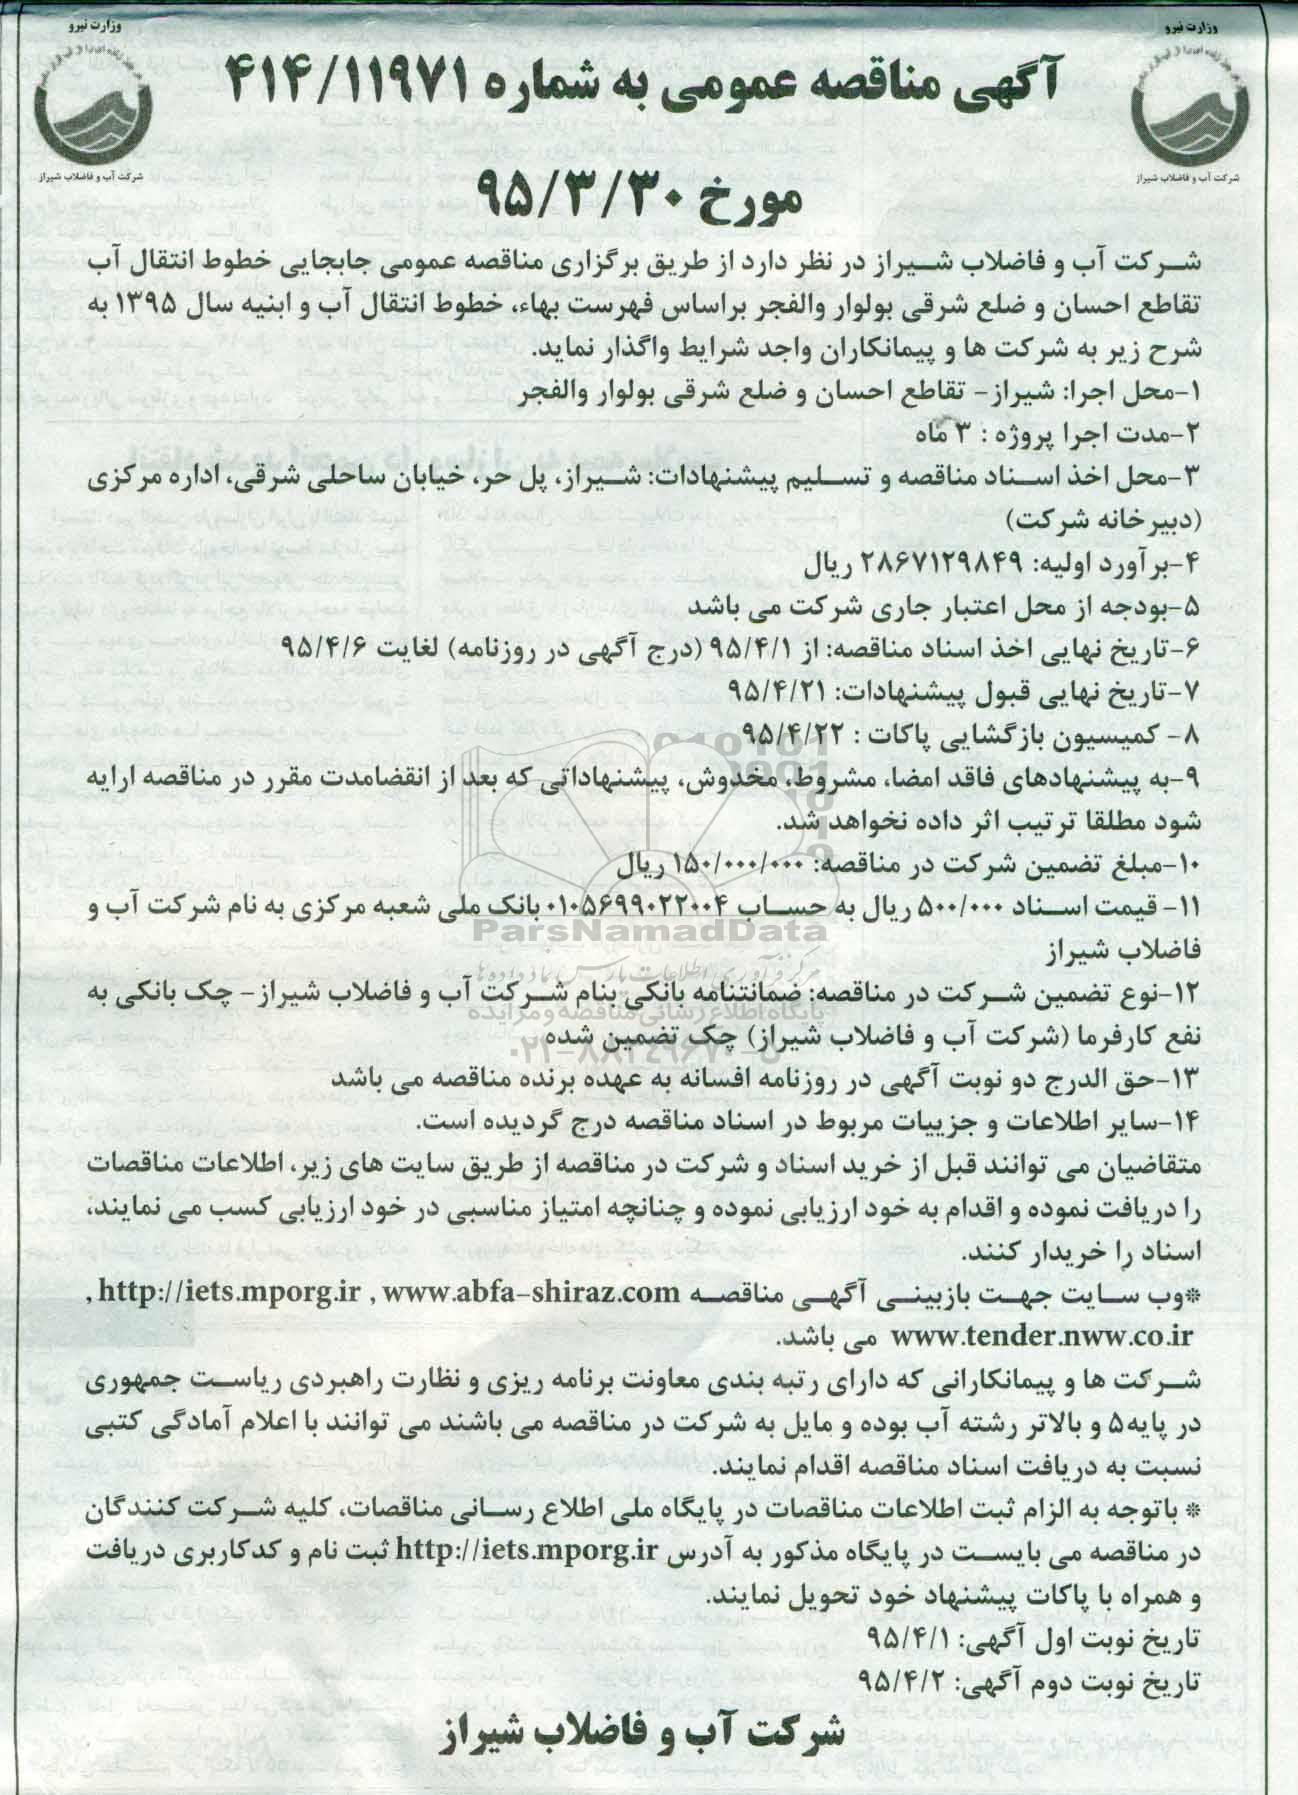 وزارت نیرو
شرکت آب و فاضلاب شیراز
وزارت نیرو
شرکت آب و فاضلاب شیراز
آگهی مناقصه عمومی به شماره ۴۱۴/۱۱۹۷۱
مورخ ۹۵/۳/۳۰
شرکت آب و فاضلاب شیراز در نظر دارد از طریق برگزاری مناقصه عمومی جابجایی خطوط انتقال آب
تقاطع احسان و ضلع شرقی بولوار والفجر براساس فهرست بهاء، خطوط انتقال آب و ابنیه سال ۱۳۹۵ به
شرح زیر به شرکت ها و پیمانکاران واجد شرایط واگذار نماید.
۱-محل اجرا: شیراز- تقاطع احسان و ضلع شرقی بولوار والفجر
۲-مدت اجرا پروژه : ۳ ماه
۳-محل اخذ اسناد مناقصه و تسلیم پیشنهادات: شیراز، پل حر، خیابان ساحلی شرقی، اداره مرکزی
(دبیرخانه شرکت)
۴-برآورد اولیه: ۲۸۶۷۱۲۹۸۴۹ ریال
۵-بودجه از محل اعتبار جاری شرکت می باشد
۶-تاریخ نهایی اخذ اسناد مناقصه: از ۹۵/۴/۱ (درج آگهی در روزنامه) لغایت ۹۵/۴/۶
۷-تاریخ نهایی قبول پیشنهادات: ۹۵/۴/۲۱
۸- کمیسیون بازگشایی پاکات : ۹۵/۴/۲۲
۹-به پیشنهادهای فاقد امضا، مشروط، مخدوش، پیشنهاداتی که بعد از انقضامدت مقرر در مناقصه ارایه
شود مطلقا ترتیب اثر داده نخواهد شد.
۱۰-مبلغ تضمین شرکت در مناقصه: ۱۵۰/۰۰۰/۰۰۰ ریال
۱۱- قیمت اسناد ۵۰۰/۰۰۰ ریال به حساب ۰۱۰۵۶۹۹۰۲۲۰۰۴ بانک ملی شعبه مرکزی به نام شرکت آب و
فاضلاب شیراز
ParsNamadData
مرکز فرآوری اطلاعات پارس نماد داده ها
۱۲-نوع تضمین شرکت در مناقصه: ضمانتنامه بانکی بنام شرکت آب و فاضلاب شیراز- چک بانکی به
پایگاه اطلاع رسانی مناقصه و مزایده
نفع کارفرما (شرکت آب و فاضلاب شیراز) چک تضمین شده
۰۲۱-۸۸۳۴۹۶۷۰-۵
۱۳-حق الدرج دو نوبت آگهی در روزنامه افسانه به عهده برنده مناقصه می باشد
۱۴-سایر اطلاعات و جزییات مربوط در اسناد مناقصه درج گردیده است.
متقاضیان می توانند قبل از خرید اسناد و شرکت در مناقصه از طریق سایت های زیر، اطلاعات مناقصات
را دریافت نموده و اقدام به خود ارزیابی نموده و چنانچه امتیاز مناسبی در خود ارزیابی کسب می نمایند،
اسناد را خریدار کنند.
*وب سایت جهت بازبینی آگهی مناقصه http://iets.mporg.ir , www.abfa-shiraz.com ,
www.tender.nww.co.ir می باشد.
شرکت ها و پیمانکارانی که دارای رتبه بندی معاونت برنامه ریزی و نظارت راهبردی ریاست جمهوری
در پایه۵ و بالاتر رشته آب بوده و مایل به شرکت در مناقصه می باشند می توانند با اعلام آمادگی کتبی
نسبت به دریافت اسناد مناقصه اقدام نمایند.
* باتوجه به الزام ثبت اطلاعات مناقصات در پایگاه ملی اطلاع رسانی مناقصات، کلیه شرکت کنندگان
در مناقصه می بایست در پایگاه مذکور به آدرس http://iets.mporg.ir ثبت نام و کدکاربری دریافت
و همراه با پاکات پیشنهاد خود تحویل نمایند.
تاریخ نوبت اول آگهی: ۹۵/۴/۱
تاریخ نوبت دوم آگهی: ۹۵/۴/۲
شرکت آب و فاضلاب شیراز